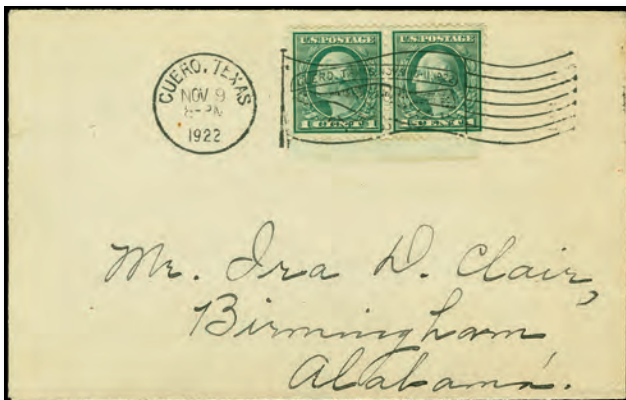 CUERO, TEXAS
NOV 9
8-PM
1922
U.S. POSTAGE
1 CENT 1
U.S. POSTAGE
CENT 1
Mr. Ira D. Clair,
Birmingham
Alabama.